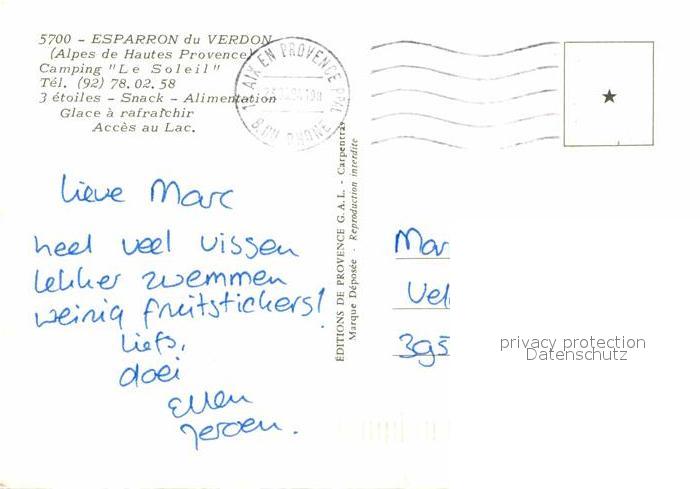 5700 - ESPARRON du VERDON
(Alpes de Hautes Provence)
Camping "Le Soleil"
Tél. (92) 78. 02. 58
3 étoiles - Snack - Alimentation
Glace à rafraîchir
Accès au Lac.
AIX EN PROVENCE PPAL
B. DU RHONE
ÉDITIONS DE PROVENCE G.A.L. - Carpentras
Marque Déposée - Reproduction interdite
Lieve Marc
heel veel vissen
lekker zwemmen
weinig fruitstickers!
Liefs,
doei
Ellen
Jeroen.
Mar
Vel
395
privacy protection
Datenschutz